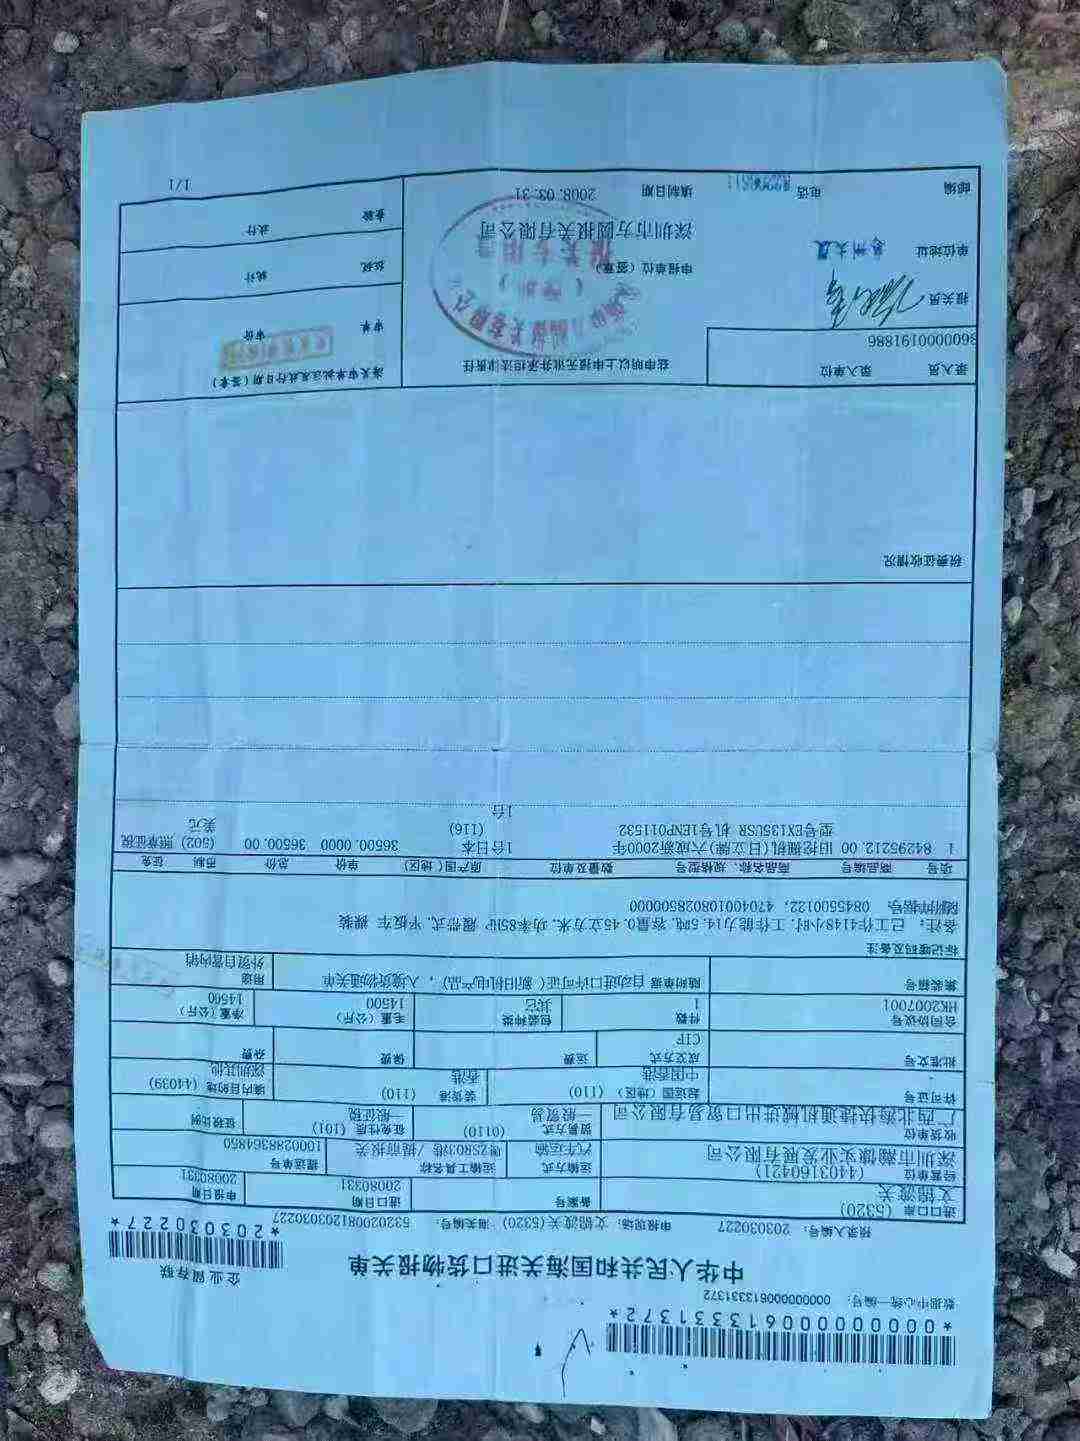 *000000000613331372*
数据中心统一编号： 000000000613331372
中华人民共和国海关进口货物报关单
企业留存联
*203030227*
预录入编号： 203030227 申报现场： 文锦渡关(5320) 海关编号： 532020081203030227
进口口岸 (5320) 备案号 进口日期 申报日期
文锦渡关 20080331 20080331
经营单位 (4403160421) 运输方式 运输工具名称 提运单号
深圳市瀚慷实业发展有限公司 汽车运输 /提前报关 1000288364850
收货单位 贸易方式 (0110) 征免性质 (101) 征税比例
广西北海快捷通机械进出口贸易有限公司 一般贸易 一般征税
许可证号 起运国(地区) (110) 装货港 (110) 境内目的地 (44039)
中国香港 香港 深圳其他
批准文号 成交方式 运费 保费 杂费
CIF
合同协议号 件数 包装种类 毛重(公斤) 净重(公斤)
HK2007001 1 其它 14500 14500
集装箱号 随附单据 自动进口许可证(新旧机电产品)，入境货物通关单 用途
外贸自营内销
标记唛码及备注
备注： 已工作4148小时.工作能力.14.5吨.容量0.45立方.米.功率85HP 履带式.平板车 裸装
随附单据号 0845600122; 470400108028500000
项号 商品编号 商品名称、规格型号 数量及单位 原产国(地区) 单价 总价 币制 征免
1 84295212.00 旧挖掘机(日立牌)六成新2000年 1台 日本 36500.0000 36500.00 (502) 照章征税
型号EX135USR 机号1ENP011532 (116) 美元
1台
税费征收情况
录入员 录入单位 兹申明以上申报无讹并承担法律责任 海关审单批注及放行日期(签章)
8600000191886
报关员 审单 审价
申报单位(签章)
单位地址 深圳市方圆报关有限公司 征税 统计
查验 放行
邮编 电话 填制日期 2008.03.31
报关专用章
1/1